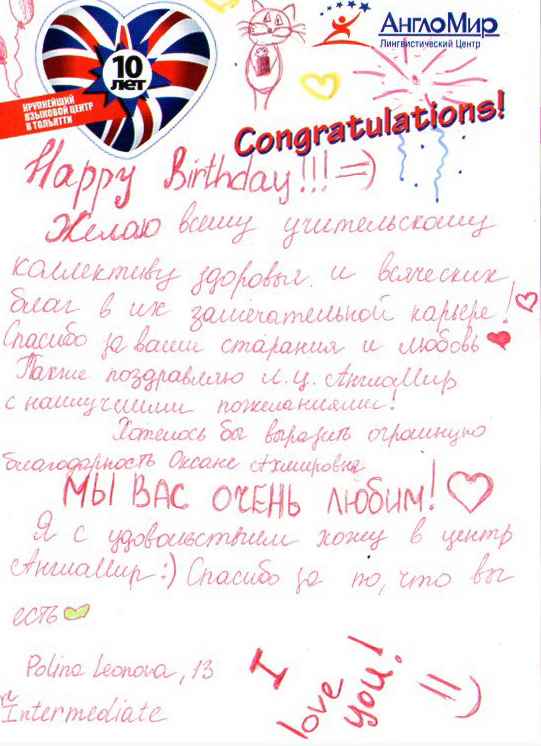 10
лет
КРУПНЕЙШИЙ
ЯЗЫКОВОЙ ЦЕНТР
В ТОЛЬЯТТИ
АнглоМир
Лингвистический Центр
Congratulations!
Happy Birthday!!! =)
Желаю всему учительскому
коллективу здоровья и всяческих
благ в их замечательной карьере!
Спасибо за ваши старания и любовь
Также поздравляю л.ц. АнглоМир
с наилучшими пожеланиями!
Хотелось бы выразить огромную
благодарность Оксане
МЫ ВАС ОЧЕНЬ ЛЮБИМ!
Я с удовольствием хожу в центр
АнглоМир :) Спасибо за то, что вы
есть
Polina Leonova, 13
Pre
Intermediate
I
love
you!
=)